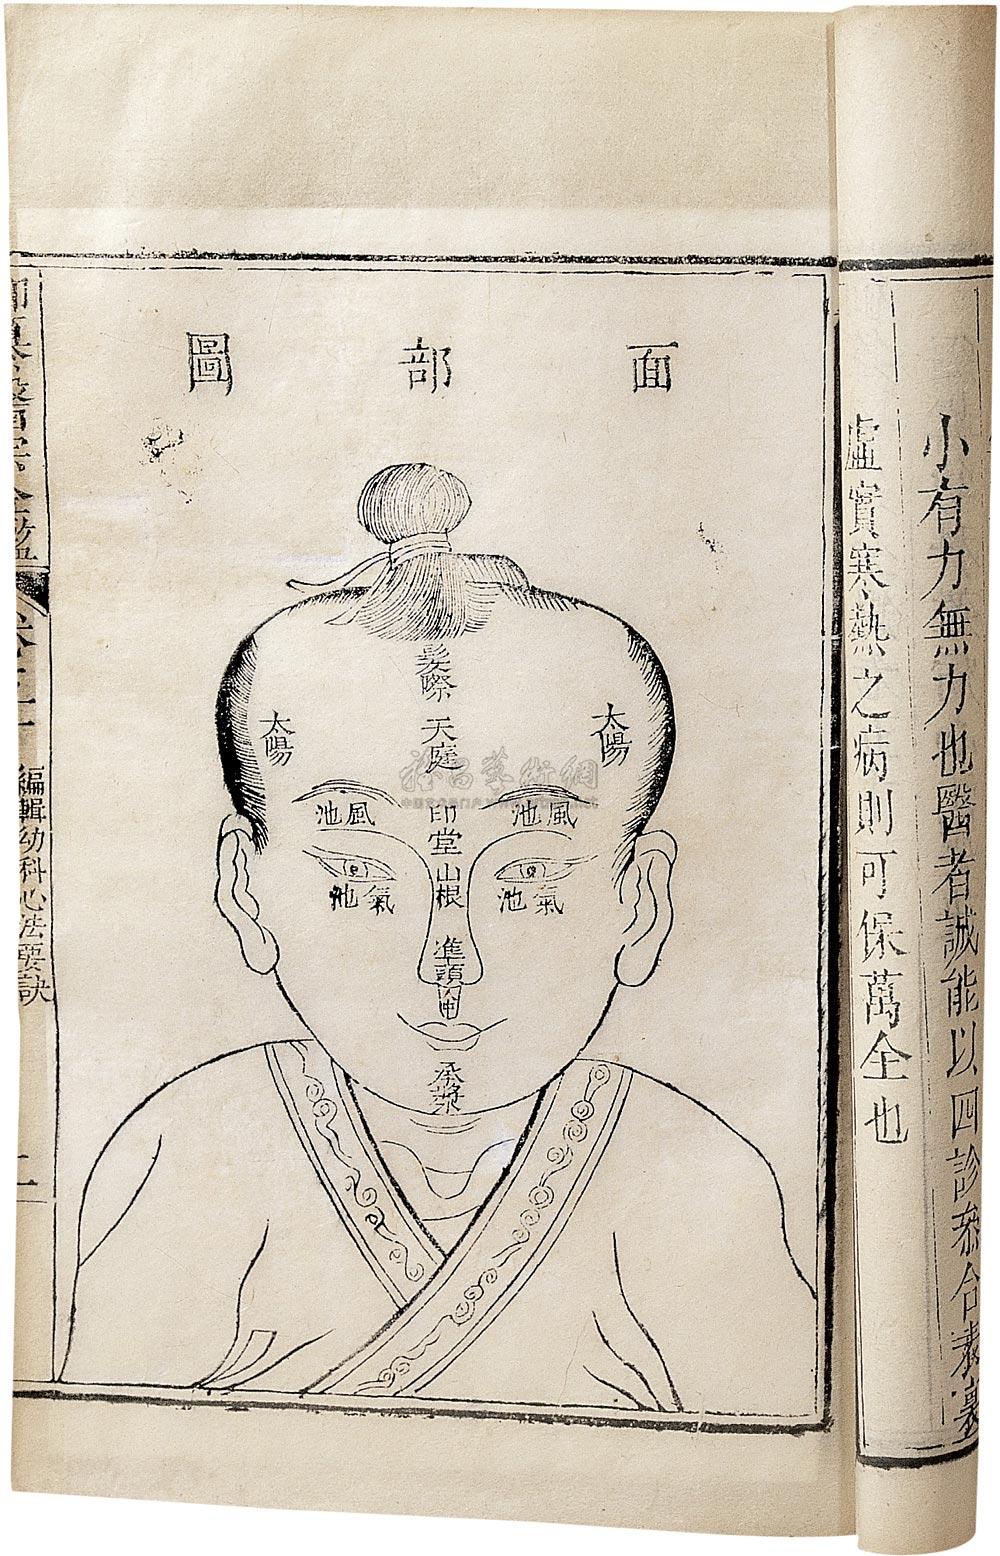 小有力無力也醫者誠能以四診叅合表裏
虛實寒熱之病則可保萬全也
面部圖
髮際
天庭
太陽
太陽
風池
風池
印堂
山根
氣池
氣池
準頭
承漿
御纂醫宗金鑑
編輯幼科心法要訣
二